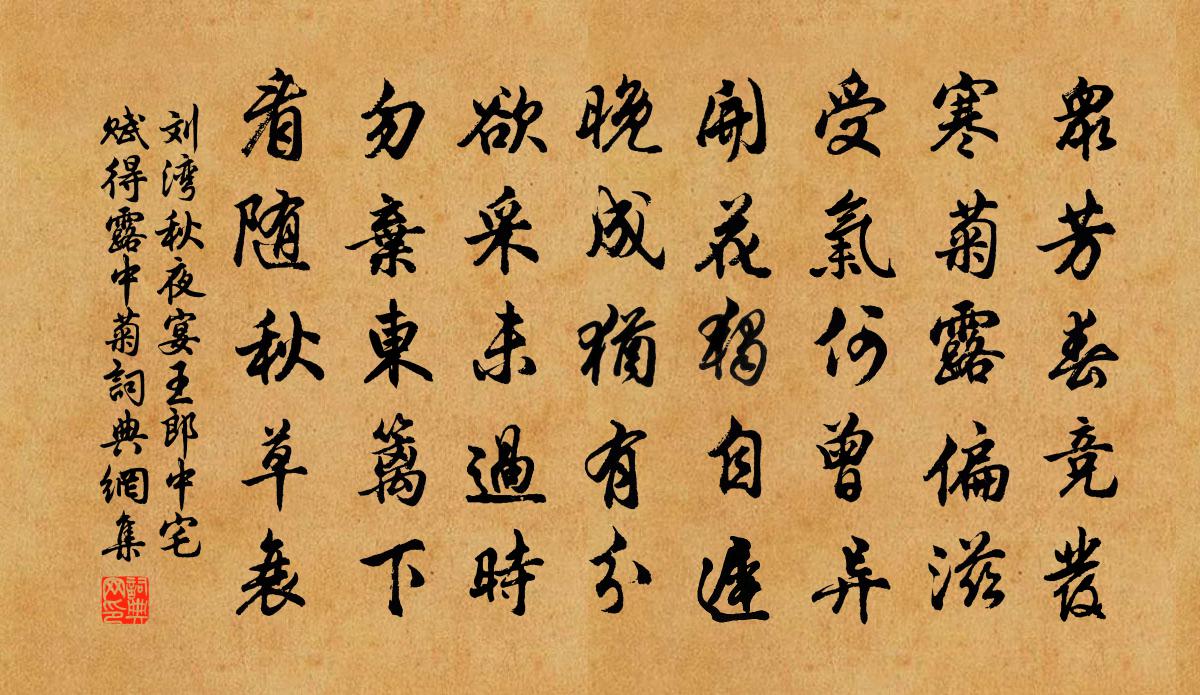 眾芳春競發
寒菊露偏滋
受氣何曾异
開花獨自遲
晚成猶有分
欲采未過時
勿棄東籬下
看随秋草衰
刘湾秋夜宴王郎中宅
赋得露中菊詞典網集
詞典網印